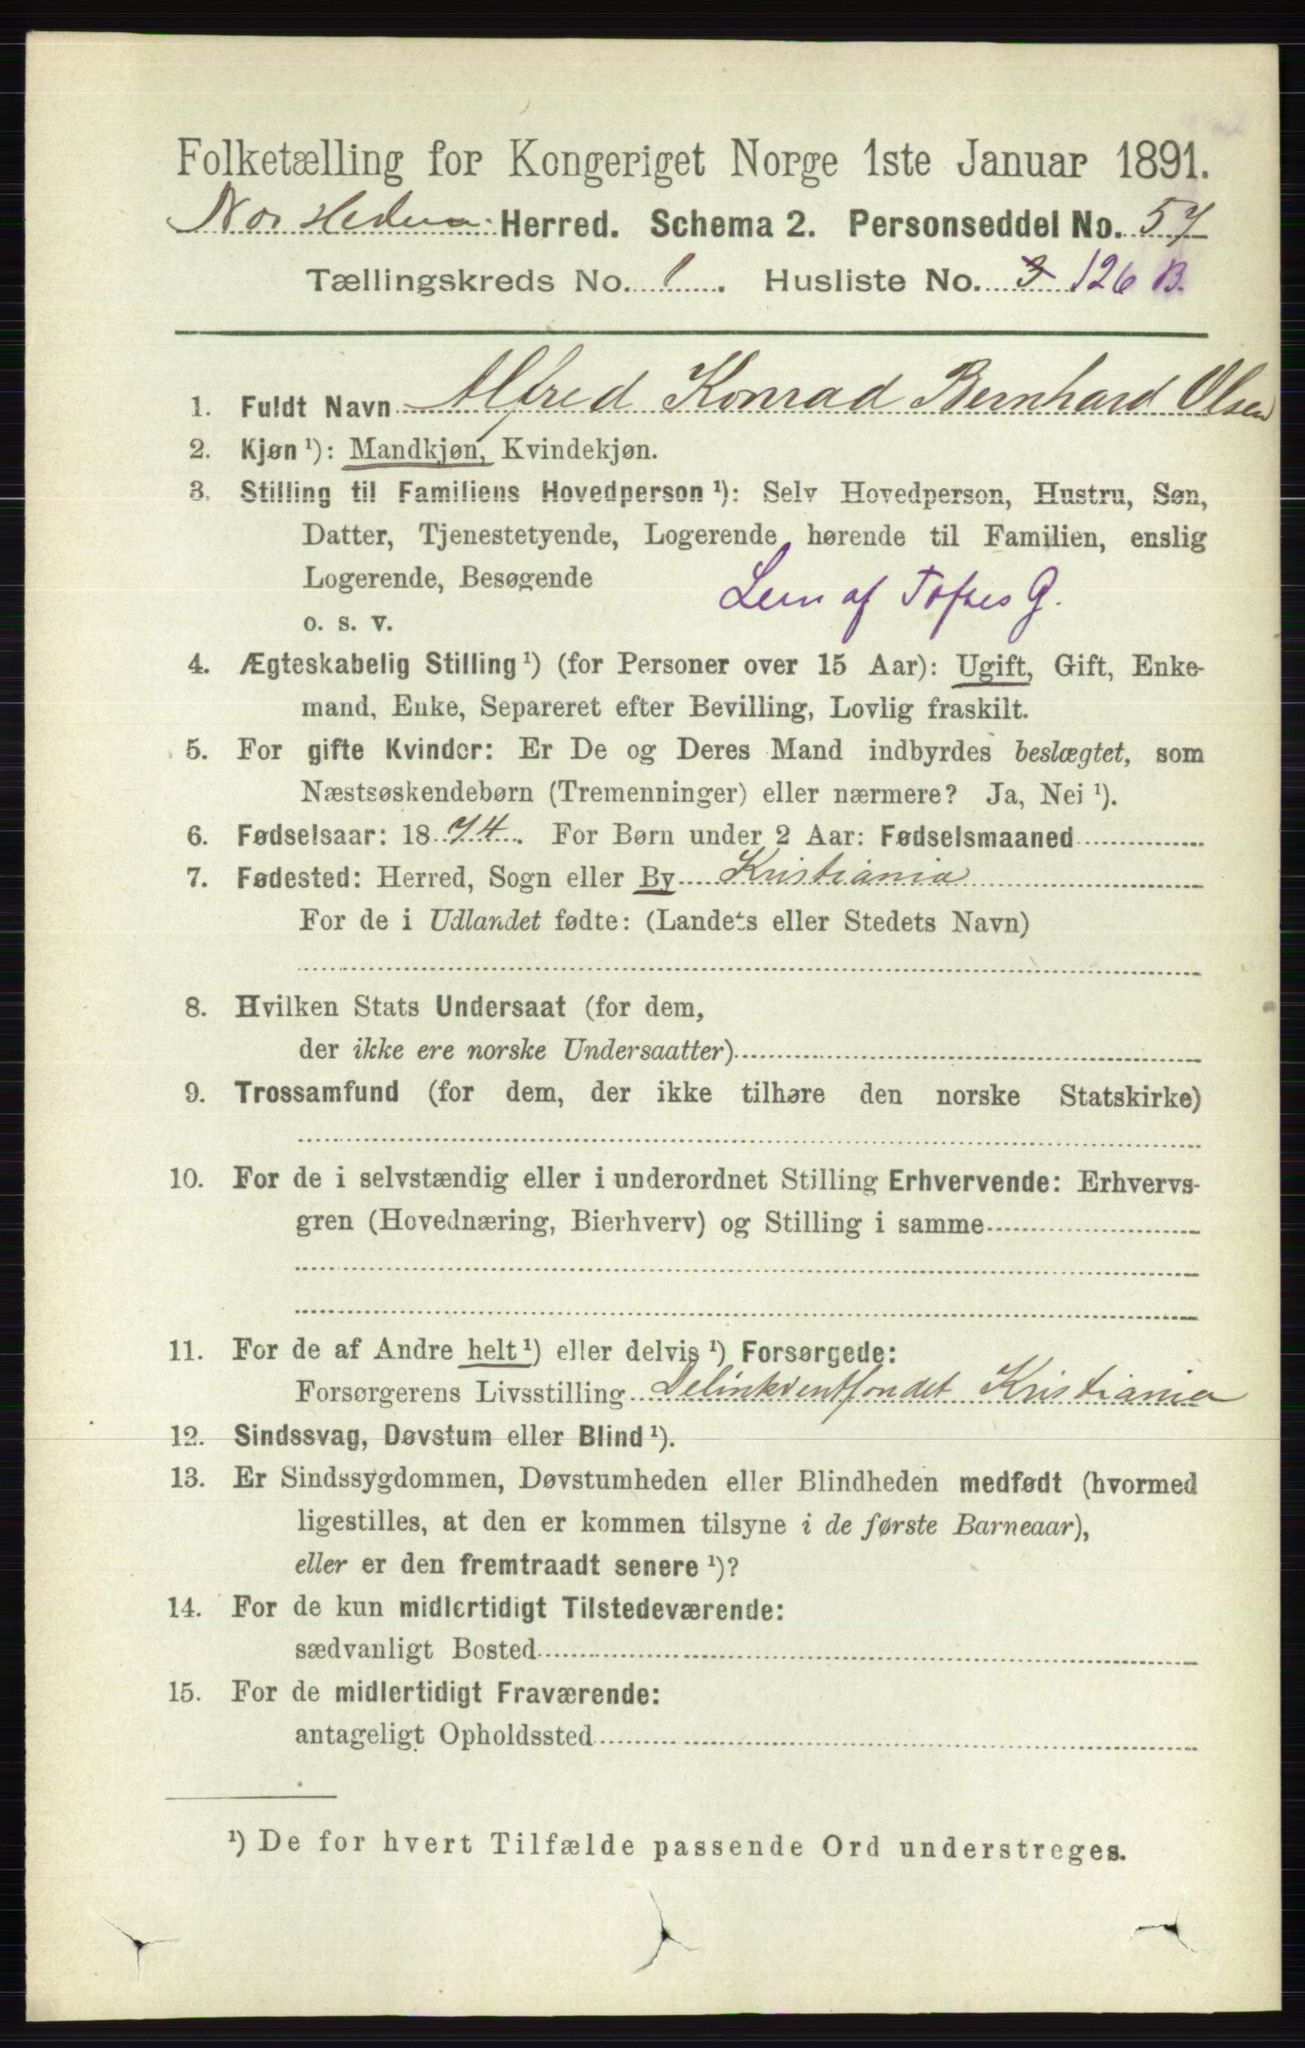 Folketælling for Kongeriget Norge 1ste Januar 1891.
Nes Hedem. Herred. Schema 2. Personseddel No. 57
Tællingskreds No. 1. Husliste No. 3 126 B.
1. Fuldt Navn Alfred Konrad Bernhard Olsen
2. Kjøn ¹): Mandkjøn, Kvindekjøn.
3. Stilling til Familiens Hovedperson ¹): Selv Hovedperson, Hustru, Søn,
Datter, Tjenestetyende, Logerende hørende til Familien, enslig
Logerende, Besøgende
o. s. v.
Lem af Toftes G.
4. Ægteskabelig Stilling ¹) (for Personer over 15 Aar): Ugift, Gift, Enke-
mand, Enke, Separeret efter Bevilling, Lovlig fraskilt.
5. For gifte Kvinder: Er De og Deres Mand indbyrdes beslægtet, som
Næstsøskendebørn (Tremenninger) eller nærmere? Ja, Nei ¹).
6. Fødselsaar: 1874. For Børn under 2 Aar: Fødselsmaaned
7. Fødested: Herred, Sogn eller By Kristiania
For de i Udlandet fødte: (Landets eller Stedets Navn)
8. Hvilken Stats Undersaat (for dem,
der ikke ere norske Undersaatter)
9. Trossamfund (for dem, der ikke tilhøre den norske Statskirke)
10. For de i selvstændig eller i underordnet Stilling Erhvervende: Erhvervs-
gren (Hovednæring, Bierhverv) og Stilling i samme
11. For de af Andre helt ¹) eller delvis ¹) Forsørgede:
Forsørgerens Livsstilling Delinkventfondet Kristiania
12. Sindssvag, Døvstum eller Blind ¹).
13. Er Sindssygdommen, Døvstumheden eller Blindheden medfødt (hvormed
ligestilles, at den er kommen tilsyne i de første Barneaar),
eller er den fremtraadt senere ¹)?
14. For de kun midlertidigt Tilstedeværende:
sædvanligt Bosted
15. For de midlertidigt Fraværende:
antageligt Opholdssted
¹) De for hvert Tilfælde passende Ord understreges.